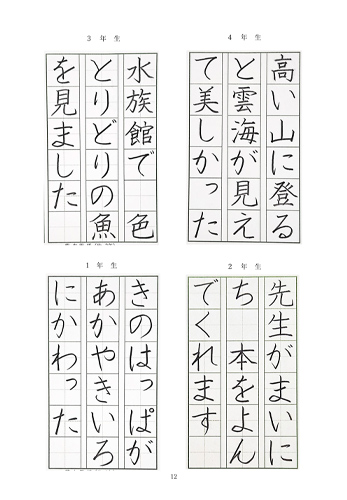 3年生
水族館で　色
とりどりの魚
を見ました
4年生
高い山に登る
と雲海が見え
て美しかった
1年生
きのはっぱが
あかやきいろ
にかわった
2年生
先生がまいに
ち　本をよん
でくれます
12